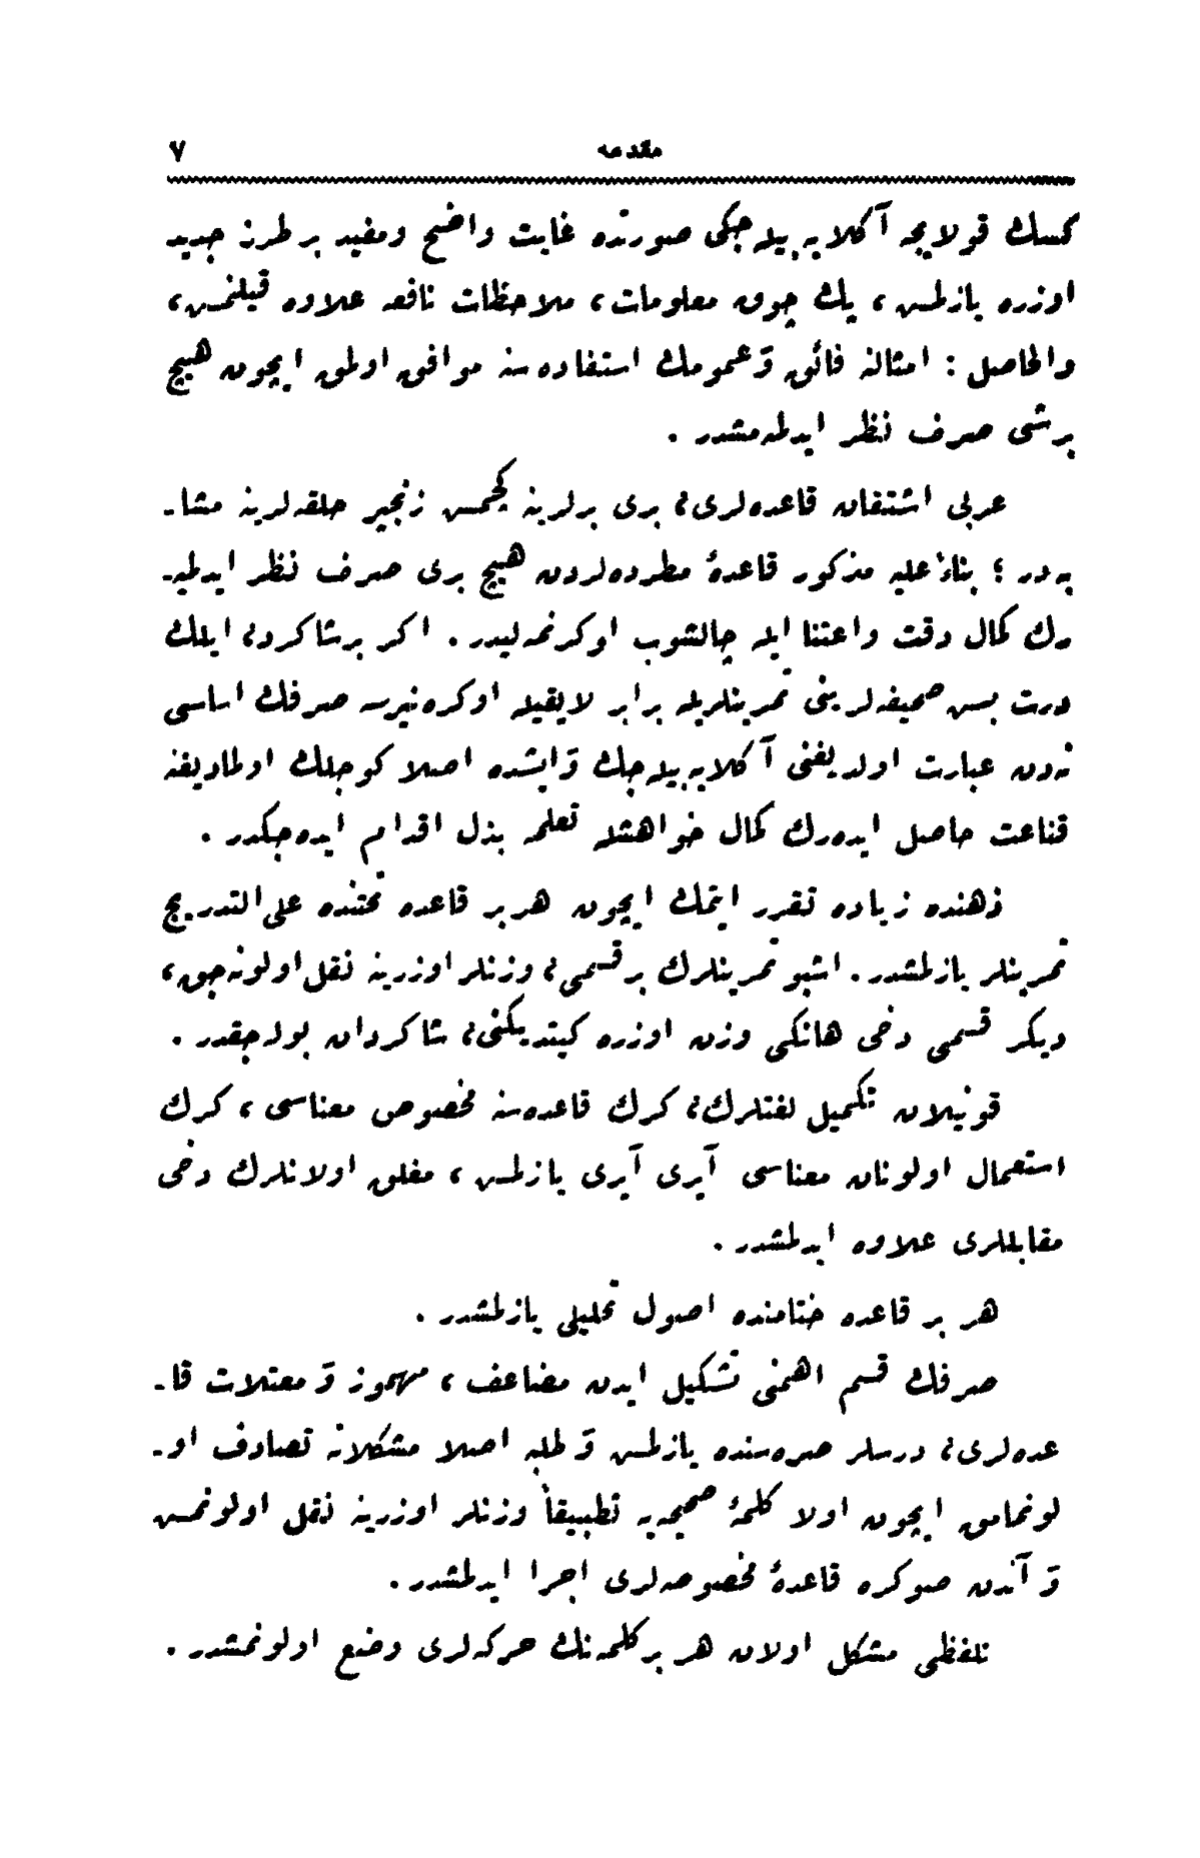 مقدمه ٧
كمسك قولايجه آكلايه بيله‌جكى صورتده غايت واضح ومفيد بر طرز جديد
اوزره يازلمش، پك چوق معلومات، ملاحظات نافعه علاوه قيلنمش،
والحاصل : امثالنه فائق وَ عمومك استفاده‌سنه موافق اولمق ايچون هيچ
برشى صرف نظر ايدلمه‌مشدر .
عربى اشتقاق قاعده‌لرى، برى برلرينه كچمش زنجير حلقه‌لرينه مشا-
به‌در ؛ بناءً عليه مذكور قاعدهٔ مطرده‌لردن هيچ برى صرف نظر ايدلميه-
رك كمال دقت واعتنا ايله چالشوب اوكرنمه‌ليدر . اكر برشاكرد، ايلك
درت بش صحيفه‌لرينى تمرينلريله برابر لايقيله اوكره‌نيرسه صرفك اساسى
نه‌دن عبارت اولديغنى آكلايه بيله‌جك وَ ايشده اصلا كوجلك اولماديغنه
قناعت حاصل ايده‌رك كمال خواهشله تعلمه بذل اقدام ايده‌جكدر .
ذهنده زياده تقرر ايتمك ايچون هربر قاعده تحتنده على التدريج
تمرينلر يازلمشدر . اشبو تمرينلرك برقسمى، وزنلر اوزرينه نقل اولونه‌جق،
ديكر قسمى دخى هانكى وزن اوزره كيتديكنى، شاكردان بوله‌جقدر .
قونيلان تكميل لغتلرك، كرك قاعده‌سنه مخصوص معناسى ، كرك
استعمال اولونان معناسى آيرى آيرى يازلمش ، مغلق اولانلرك دخى
مقابللرى علاوه ايدلمشدر .
هر بر قاعده ختامنده اصول تحليلى يازلمشدر .
صرفك قسم اهمنى تشكيل ايدن مضاعف ، مهموز وَ معتلات قا-
عده‌لرى، درسلر صره‌سنده يازلمش وَ طلبه اصلا مشكلاته تصادف او-
لونمامق ايچون اولا كلمهٔ صحيحه‌يه تطبيقاً وزنلر اوزرينه نقل اولونمش
وَ آندن صوكره قاعدهٔ مخصوصه‌لرى اجرا ايدلمشدر .
تلفظى مشكل اولان هر بر كلمه‌نك حركه‌لرى وضع اولونمشدر .